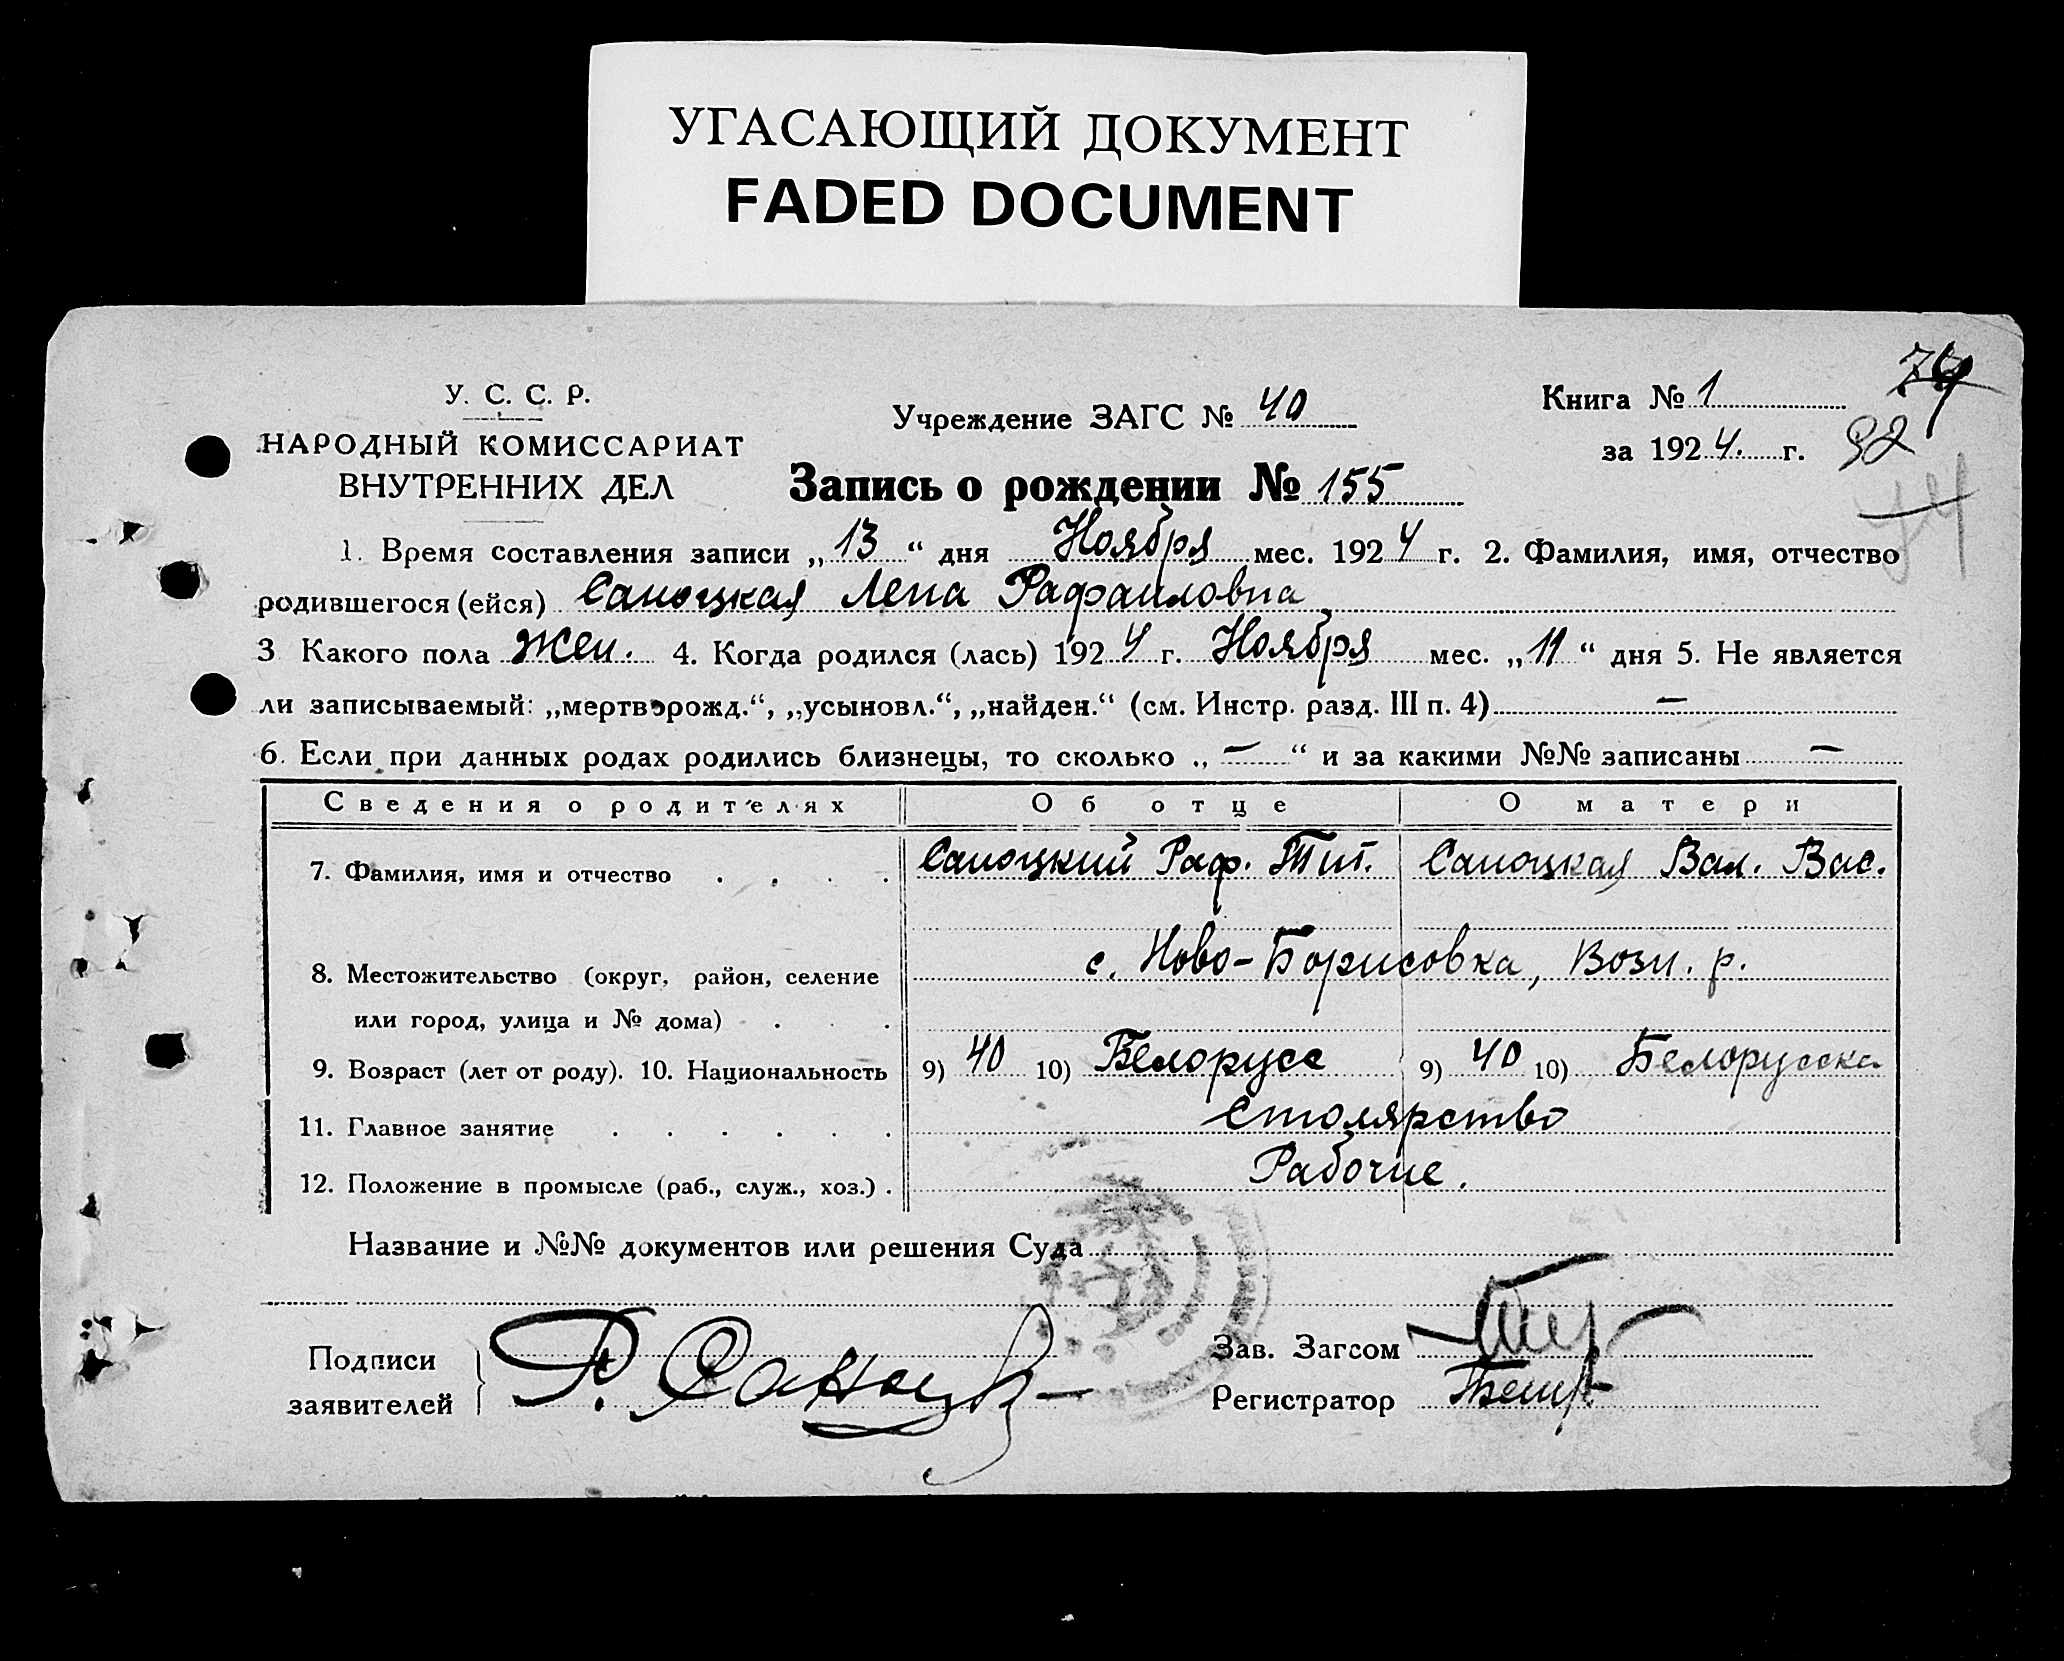 УГАСАЮЩИЙ ДОКУМЕНТ
FADED DOCUMENT
У. С. С. Р.
НАРОДНЫЙ КОМИССАРИАТ
ВНУТРЕННИХ ДЕЛ
Учреждение ЗАГС № 40
Книга № 1
за 1924. г.
74
92
74
Запись о рождении № 155
1. Время составления записи „13“ дня Ноября мес. 1924 г. 2. Фамилия, имя, отчество
родившегося (ейся) Саноцкая Лена Рафаиловна
3 Какого пола Жен. 4. Когда родился (лась) 1924 г. Ноября мес. „11“ дня 5. Не является
ли записываемый: „мертворожд.“, „усыновл.“, „найден.“ (см. Инстр. разд. III п. 4) —
6. Если при данных родах родились близнецы, то сколько „—“ и за какими №№ записаны —
Сведения о родителях Об отце О матери
7. Фамилия, имя и отчество . . . . Саноцкий Раф. Тит. Саноцкая Вал. Вас.
8. Местожительство (округ, район, селение с. Ново-Борисовка, Возн. р.
или город, улица и № дома) . . .
9. Возраст (лет от роду). 10. Национальность 9) 40 10) Белорусс 9) 40 10) Белорусска
11. Главное занятие . . . . . . Столярство
12. Положение в промысле (раб., служ., хоз.) . Рабочие.
Название и №№ документов или решения Суда
Подписи
заявителей
Р. Саноцк
Зав. Загсом
Регистратор